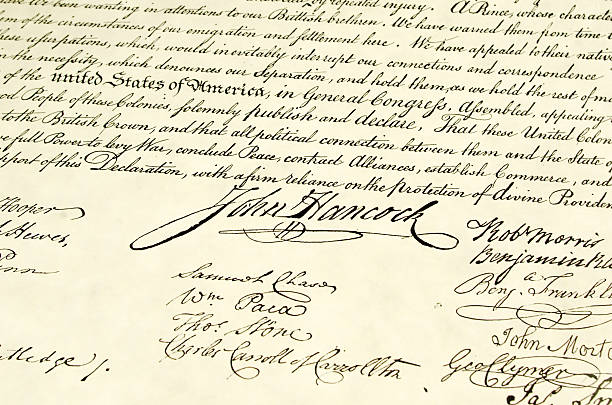 have We been wanting in attentions to our British brethren. We have warned them from time
of the circumstances of our emigration and settlement here. We have appealed to their native
these usurpations, which, would inevitably interrupt our connections and correspondence
the necessity, which denounces our Separation, and hold them, as we hold the rest of
of the united States of America, in General Congress, Assembled, appealing
People of these Colonies, solemnly publish and declare, That these United
to the British Crown, and that all political connection between them and the State of
full Power to levy War, conclude Peace, contract Alliances, establish Commerce, and
of this Declaration, with a firm reliance on the protection of divine
John Hancock
Hooper
Hewes,
Penn
Samuel Chase
Wm Paca
Thos. Stone
Charles Carroll of Carrollton
Robt Morris
Benjamin
Benja. Franklin
John
Geo Clymer
Jas.